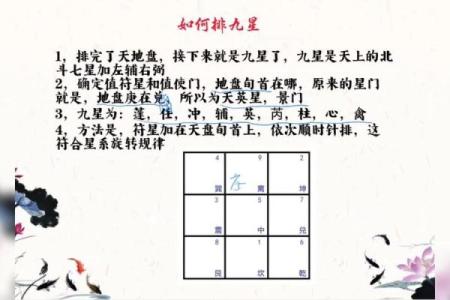 如何排九星
1，排完了天地盘，接下来就是九星了，九星是天上的北
斗七星加左辅右弼
2，确定值符星和值使门，地盘旬首在哪，原来的星门
就是，地盘庚在兑，所以为天英星，景门
3，九星为：蓬，任，冲，辅，英，芮，柱，心，禽
4，方法是，符星加在天盘旬首上，依次顺时针排，这
符合星系旋转规律
4 9 2
巽 离 坤
3 5 7
震 中 兑
8 1 6
艮 坎 乾